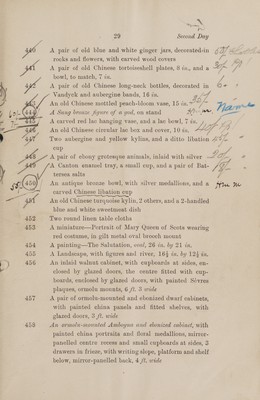 29
Second Day
440 A pair of old blue and white ginger jars, decorated in
rocks and flowers, with carved wood covers
441 A pair of old Chinese tortoiseshell plates, 8 in., and a
bowl, to match, 7 in.
442 A pair of old Chinese long-neck bottles, decorated in
Vandyck and aubergine bands, 16 in.
443 An old Chinese mottled peach-bloom vase, 15 in.
444 A Sung bronze figure of a god, on stand
445 A carved red lac hanging vase, and a lac bowl, 7 in.
446 An old Chinese circular lac box and cover, 10 in.
447 Two aubergine and yellow kylins, and a ditto libation
cup
448 A pair of ebony grotesque animals, inlaid with silver
449 A Canton enamel tray, a small cup, and a pair of Bat-
tersea salts
450 An antique bronze bowl, with silver medallions, and a
carved Chinese libation cup
451 An old Chinese turquoise kylin, 2 others, and a 2-handled
blue and white sweetmeat dish
452 Two round linen table cloths
453 A miniature—Portrait of Mary Queen of Scots wearing
red costume, in gilt metal oval broach mount
454 A painting—The Salutation, oval, 26 in. by 21 in.
455 A Landscape, with figures and river, 16½ in. by 12½ in.
456 An inlaid walnut cabinet, with cupboards at sides, en-
closed by glazed doors, the centre fitted with cup-
boards, enclosed by glazed doors, with painted Sèvres
plaques, ormolu mounts, 6 ft. 3 wide
457 A pair of ormolu-mounted and ebonized dwarf cabinets,
with painted china panels and fitted shelves, with
glazed doors, 3 ft. wide
458 An ormolu-mounted Amboyna and ebonized cabinet, with
painted china portraits and floral medallions, mirror-
panelled centre recess and small cupboards at sides, 3
drawers in frieze, with writing slope, platform and shelf
below, mirror-panelled back, 4 ft. wide